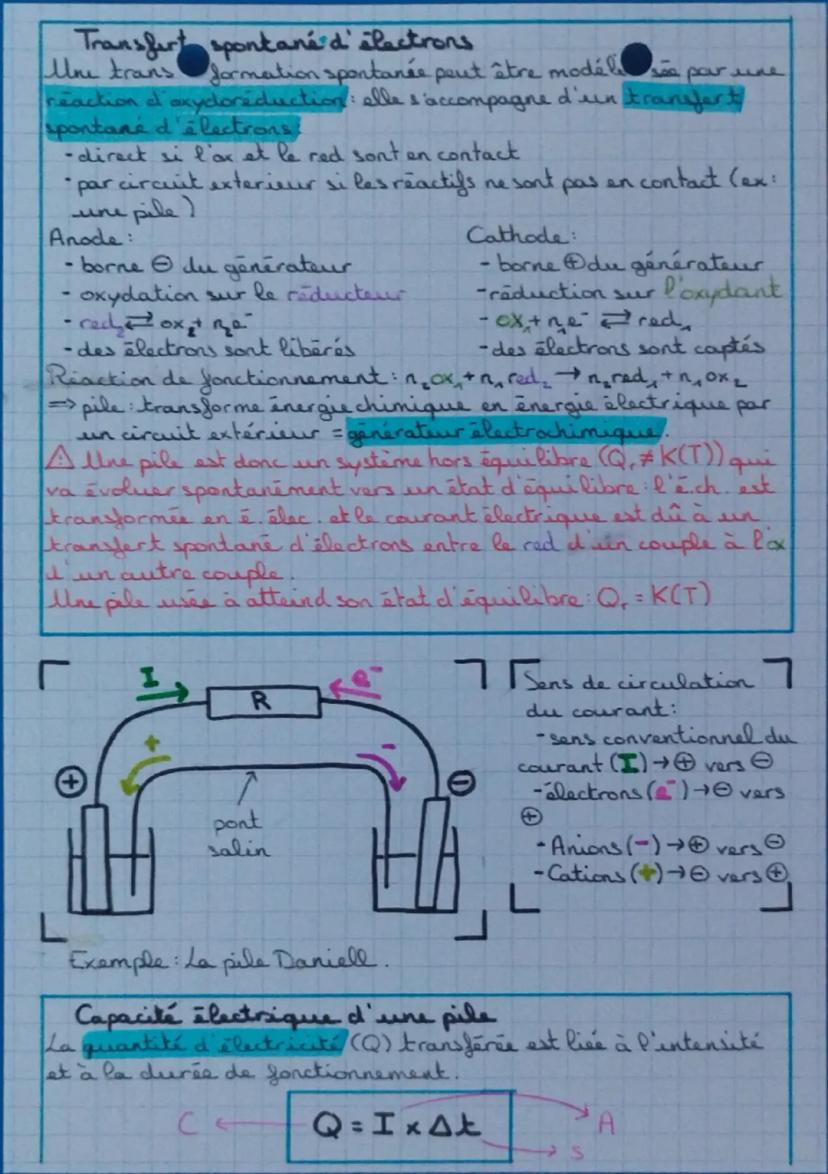 Transfert spontané d'électrons
Une transformation spontanée peut être modélisée par une
réaction d'oxydoréduction : elle s'accompagne d'un transfert
spontané d'électrons :
- direct si l'ox et le red sont en contact
- par circuit exterieur si les réactifs ne sont pas en contact (ex :
une pile)
Anode :
- borne ⊖ du générateur
- oxydation sur le réducteur
- red₂ ⇄ ox₂ + n₂e⁻
- des électrons sont libérés
Cathode :
- borne ⊕ du générateur
- réduction sur l'oxydant
- ox₁ + n₁e⁻ ⇄ red₁
- des électrons sont captés
Réaction de fonctionnement : n₂ox₁ + n₁red₂ → n₂red₁ + n₁ox₂
⇒ pile : transforme énergie chimique en énergie électrique par
un circuit extérieur = générateur électrochimique.
⚠ Une pile est donc un système hors équilibre (Qr ≠ K(T)) qui
va évoluer spontanément vers un état d'équilibre : l'é.ch. est
transformée en é. élec. et le courant électrique est dû à un
transfert spontané d'électrons entre le red d'un couple à l'ox
d'un autre couple.
Une pile usée à atteind son état d'équilibre : Qr = K(T)
I
R
e⁻
+
-
⊕
⊖
pont
salin
Sens de circulation
du courant :
- sens conventionnel du
courant (I) → ⊕ vers ⊖
- électrons (e⁻) → ⊖ vers
⊕
- Anions (-) → ⊕ vers ⊖
- Cations (+) → ⊖ vers ⊕
Exemple : La pile Daniell.
Capacité électrique d'une pile
La quantité d'électricité (Q) transférée est liée à l'intensité
et à la durée de fonctionnement.
C ← Q = I × Δt → A
→ s